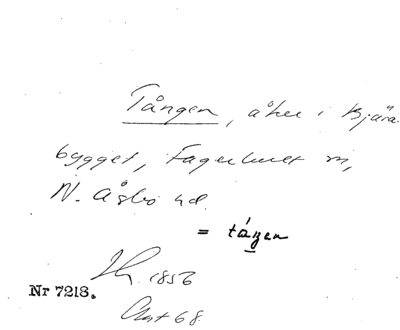 Tången, åker i Bjära
bygget, Fagerhult sn,
N. Åsbo hd.
= tången
1856
Nr 7218.
Akt 68.